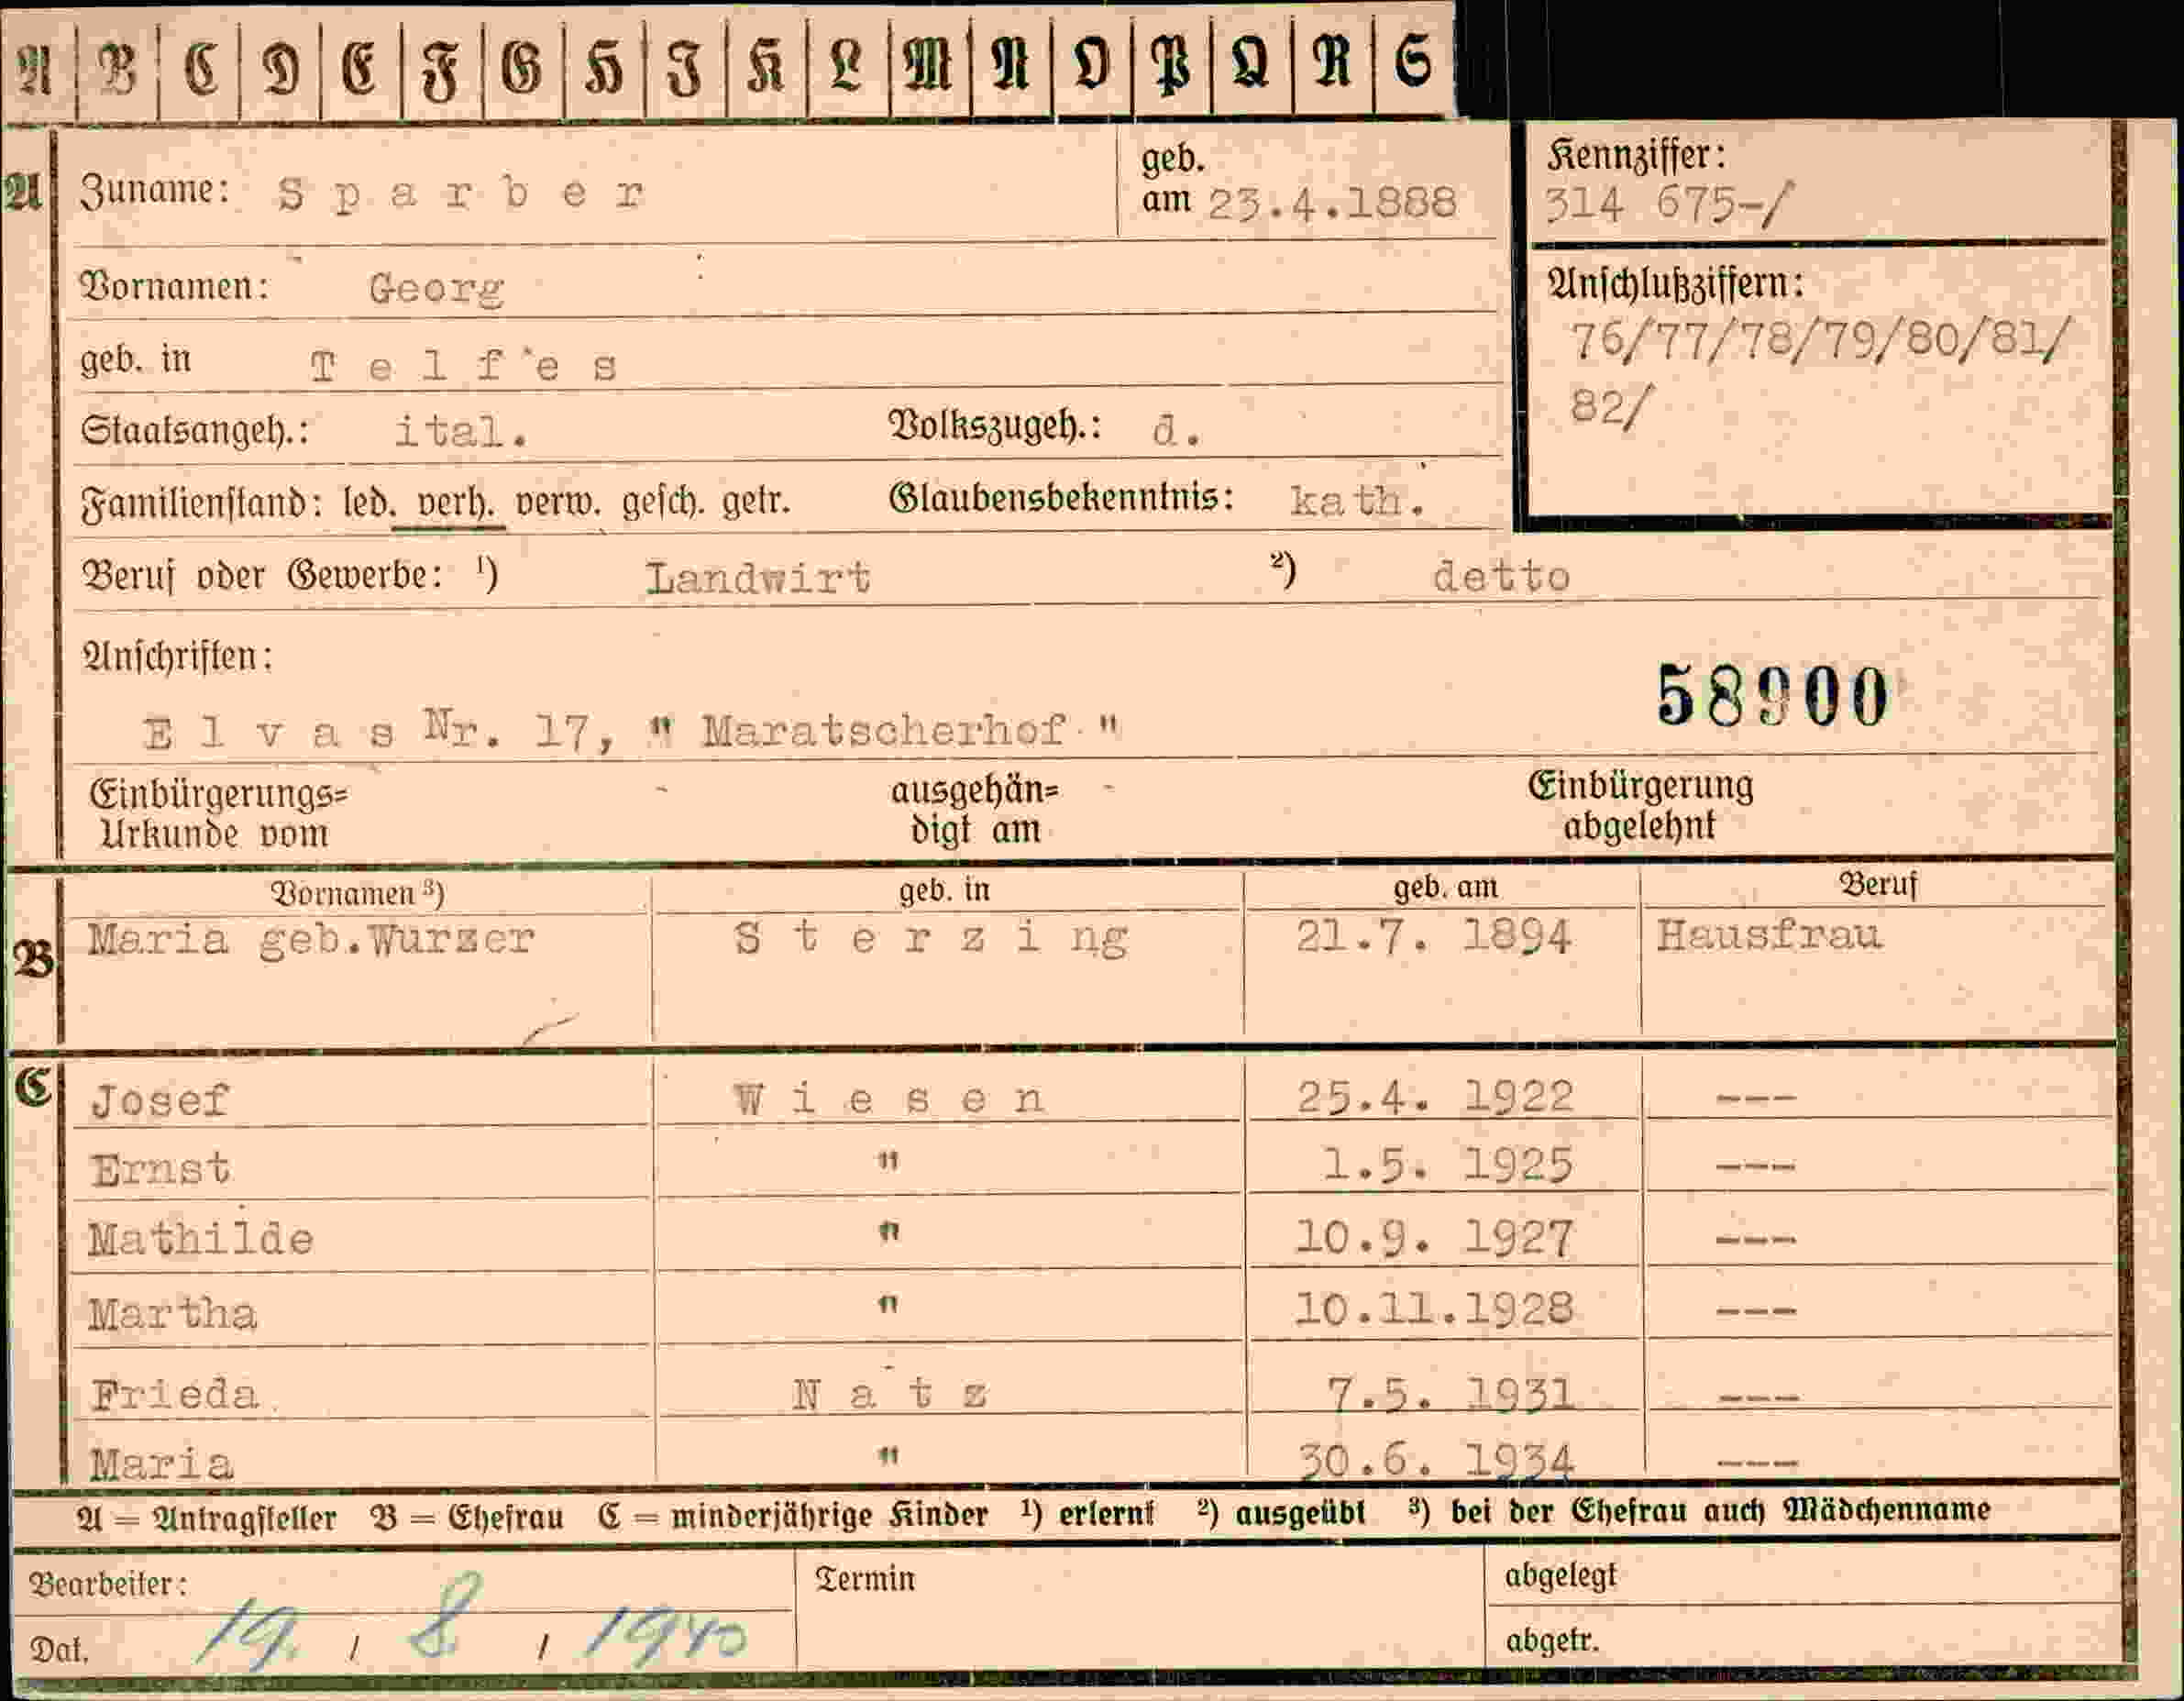 A B C D E F G H J K L M N O P Q R S
A Zuname: Sparber geb. am 23.4.1888
Kennziffer: 314 675-/
Vornamen: Georg
Anschlußziffern:
76/77/78/79/80/81/
82/
geb. in Telfes
Staatsangeh.: ital. Volkszugeh.: d.
Familienstand: led. verh. verw. gesch. getr. Glaubensbekenntnis: kath.
Beruf oder Gewerbe: ¹) Landwirt ²) detto
Anschriften:
58900
Elvas Nr. 17, " Maratscherhof "
Einbürgerungs= ausgehän= Einbürgerung
Urkunde vom digt am abgelehnt
Vornamen ³) geb. in geb. am Beruf
B Maria geb.Wurzer Sterzing 21.7. 1894 Hausfrau
C Josef Wiesen 25.4. 1922 ---
Ernst " 1.5. 1925 ---
Mathilde " 10.9. 1927 ---
Martha " 10.11.1928 ---
Frieda Natz 7.5. 1931 ---
Maria " 30.6. 1934 ---
A = Antragsteller B = Ehefrau C = minderjährige Kinder ¹) erlernt ²) ausgeübt ³) bei der Ehefrau auch Mädchenname
Bearbeiter: Termin abgelegt
Dat. 19. / 8 / 1940 abgetr.